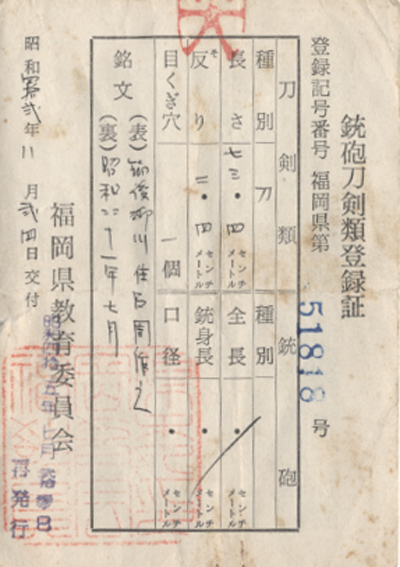 銃砲刀剣類登録証
登録記号番号 福岡県第 51818 号
刀剣類 銃砲
種別 刀 種別
長さ 七三・四 センチメートル 全長 ・ センチメートル
反り そ 二・四 センチメートル 銃身長 ・ センチメートル
目くぎ穴 一個 口径 ・ センチメートル
銘文 (表) 筑後柳川住 国作之
(裏) 昭和六十一年七月
福岡県教育委員会
昭和 年 11 月 弐四日交付
昭和 五年 月 日
再発行